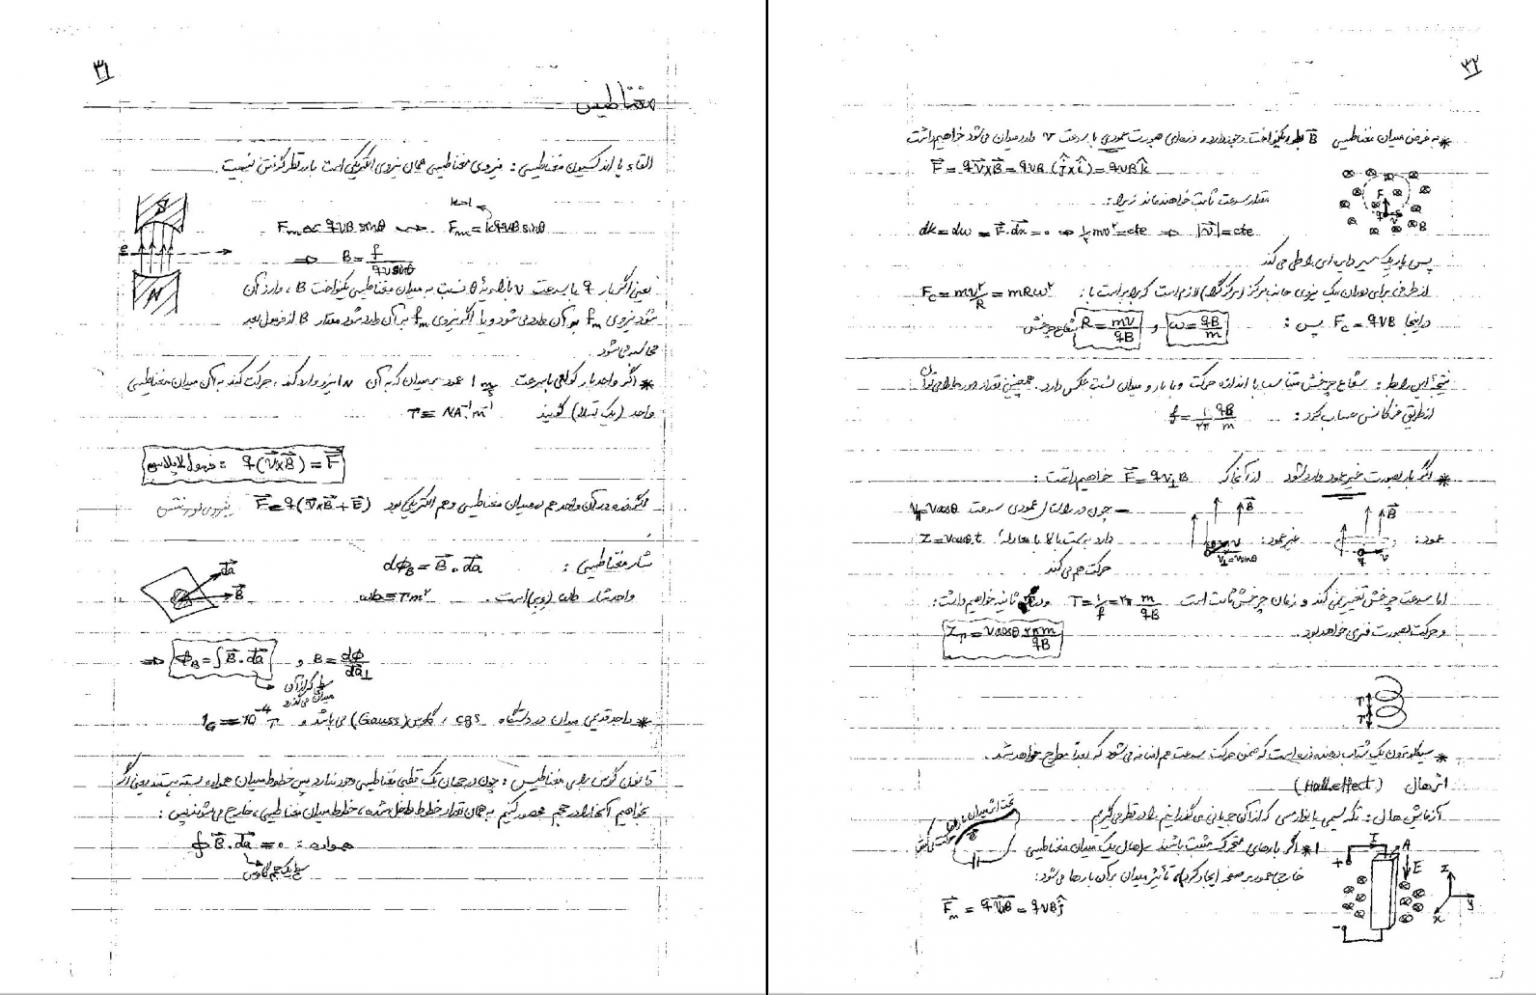 ۳۱
مغناطیس
القاء یا اندکسیون مغناطیسی : نیروی مغناطیسی همان نیروی الکتریکی است با در نظر گرفتن نسبیت.
S
N
F_m ∝ qVB sinθ ⟿ F_m = kqVB sinθ
⇒ B = f / qv sinθ
یعنی اگر بار q با سرعت v با زاویهٔ θ نسبت به میدان مغناطیسی یکنواخت B، وارد آن
شود نیروی f_m بر آن وارد می شود و یا اگر نیروی f_m بر آن وارد شود مقدار B از فرمول بعد
می آید.
* اگر واحد بار کولمبی با سرعت 1 m/s عمود بر میدان که به آن نیرو وارد کند، حرکت کند به آن میدان مغناطیسی
واحد (یک تسلا) گویند T = NA⁻¹m⁻¹
فرمول لاپلاس : q(V⃗×B⃗) = F⃗
F⃗ = q(V⃗×B⃗ + E⃗) هم میدان مغناطیسی و هم الکتریکی بود
شار مغناطیسی : dφ_B = B⃗ . da⃗
da⃗
B⃗
واحد شار وبر (وبر) است. wb = Tm²
⇒ φ_B = ∫B⃗.da⃗ , B = dφ / da⊥
سطحی که از آن
میدان می گذرد
* واحد قدیمی میدان در دستگاه cgs ، گاوس (Gauss) می باشد و 1G = 10⁻⁴ T
قانون گوس برای مغناطیس : چون در جهان تک قطبی مغناطیسی وجود ندارد پس خطوط میدان همواره بسته هستند یعنی اگر
بخواهیم آنها را در حجم محصور کنیم به همان مقدار خطوط داخل شده، خطوط میدان مغناطیسی، خارج می شوند پس :
همواره : ∮B⃗.da⃗ = ۰
۳۲
* به فرض میدان مغناطیسی B⃗ بطور یکنواخت وجود دارد و ذره ای بصورت عمودی با سرعت v وارد میدان می شود خواهیم داشت
F⃗ = qV⃗×B⃗ = qVB (ĵ×î) = qVB k̂
مقدار سرعت ثابت خواهد ماند زیرا :
dk = dw = F⃗.dx⃗ = ۰ ⇒ ½mv² = cte ⇒ |V⃗| = cte
پس بار یک مسیر دایره ای را طی می کند
از طرفی برای دوران یک نیروی جانب مرکز (مرکزگرا) لازم است که برابر است با : F_c = mv²/R = mRω²
در اینجا F_c = qVB پس : ω = qB/m و R = mV/qB شعاع چرخش
نتیجهٔ این رابطه : شعاع چرخش متناسب با اندازه حرکت و با بار و میدان نسبت عکس دارد. همچنین تعداد دورها را می توان
از طریق فرکانس حساب کرد : f = ۱/۲π qB/m
* اگر بار بصورت غیر عمود وارد شود از آنجا که F⃗ = qv⊥B خواهیم داشت :
عمود :
غیر عمود :
– چون در راستای عمودی سرعت V∥ = Vcosθ
دارد به سمت بالا با معادلهٔ Z = Vcosθ.t
حرکت هم می کند
اما سرعت چرخش تغییر نمی کند و زمان چرخش ثابت است T = 1/f = ۲π m/qB و در ثانیه خواهیم داشت :
Z_T = Vcosθ ۲πm / qB
و حرکت بصورت فنری خواهد بود.
* سیکلوترون یک شتاب دهنده ذره است که ضمن حرکت سرعت هم اضافه می شود که بعداً مطرح خواهد شد.
اثر هال (Hall effect)
آزمایش هال : تکه سیمی یا نوار مسی که از آن جریانی می گذرانیم را در نظر می گیریم
۱* اگر بارهای متحرک مثبت باشند حال یک میدان مغناطیسی
خارجی عمود بر صفحه ایجاد کردیم، تأثیر میدان بر آن بارها می شود :
F⃗_m = qV⃗B⃗ = qVB ĵ